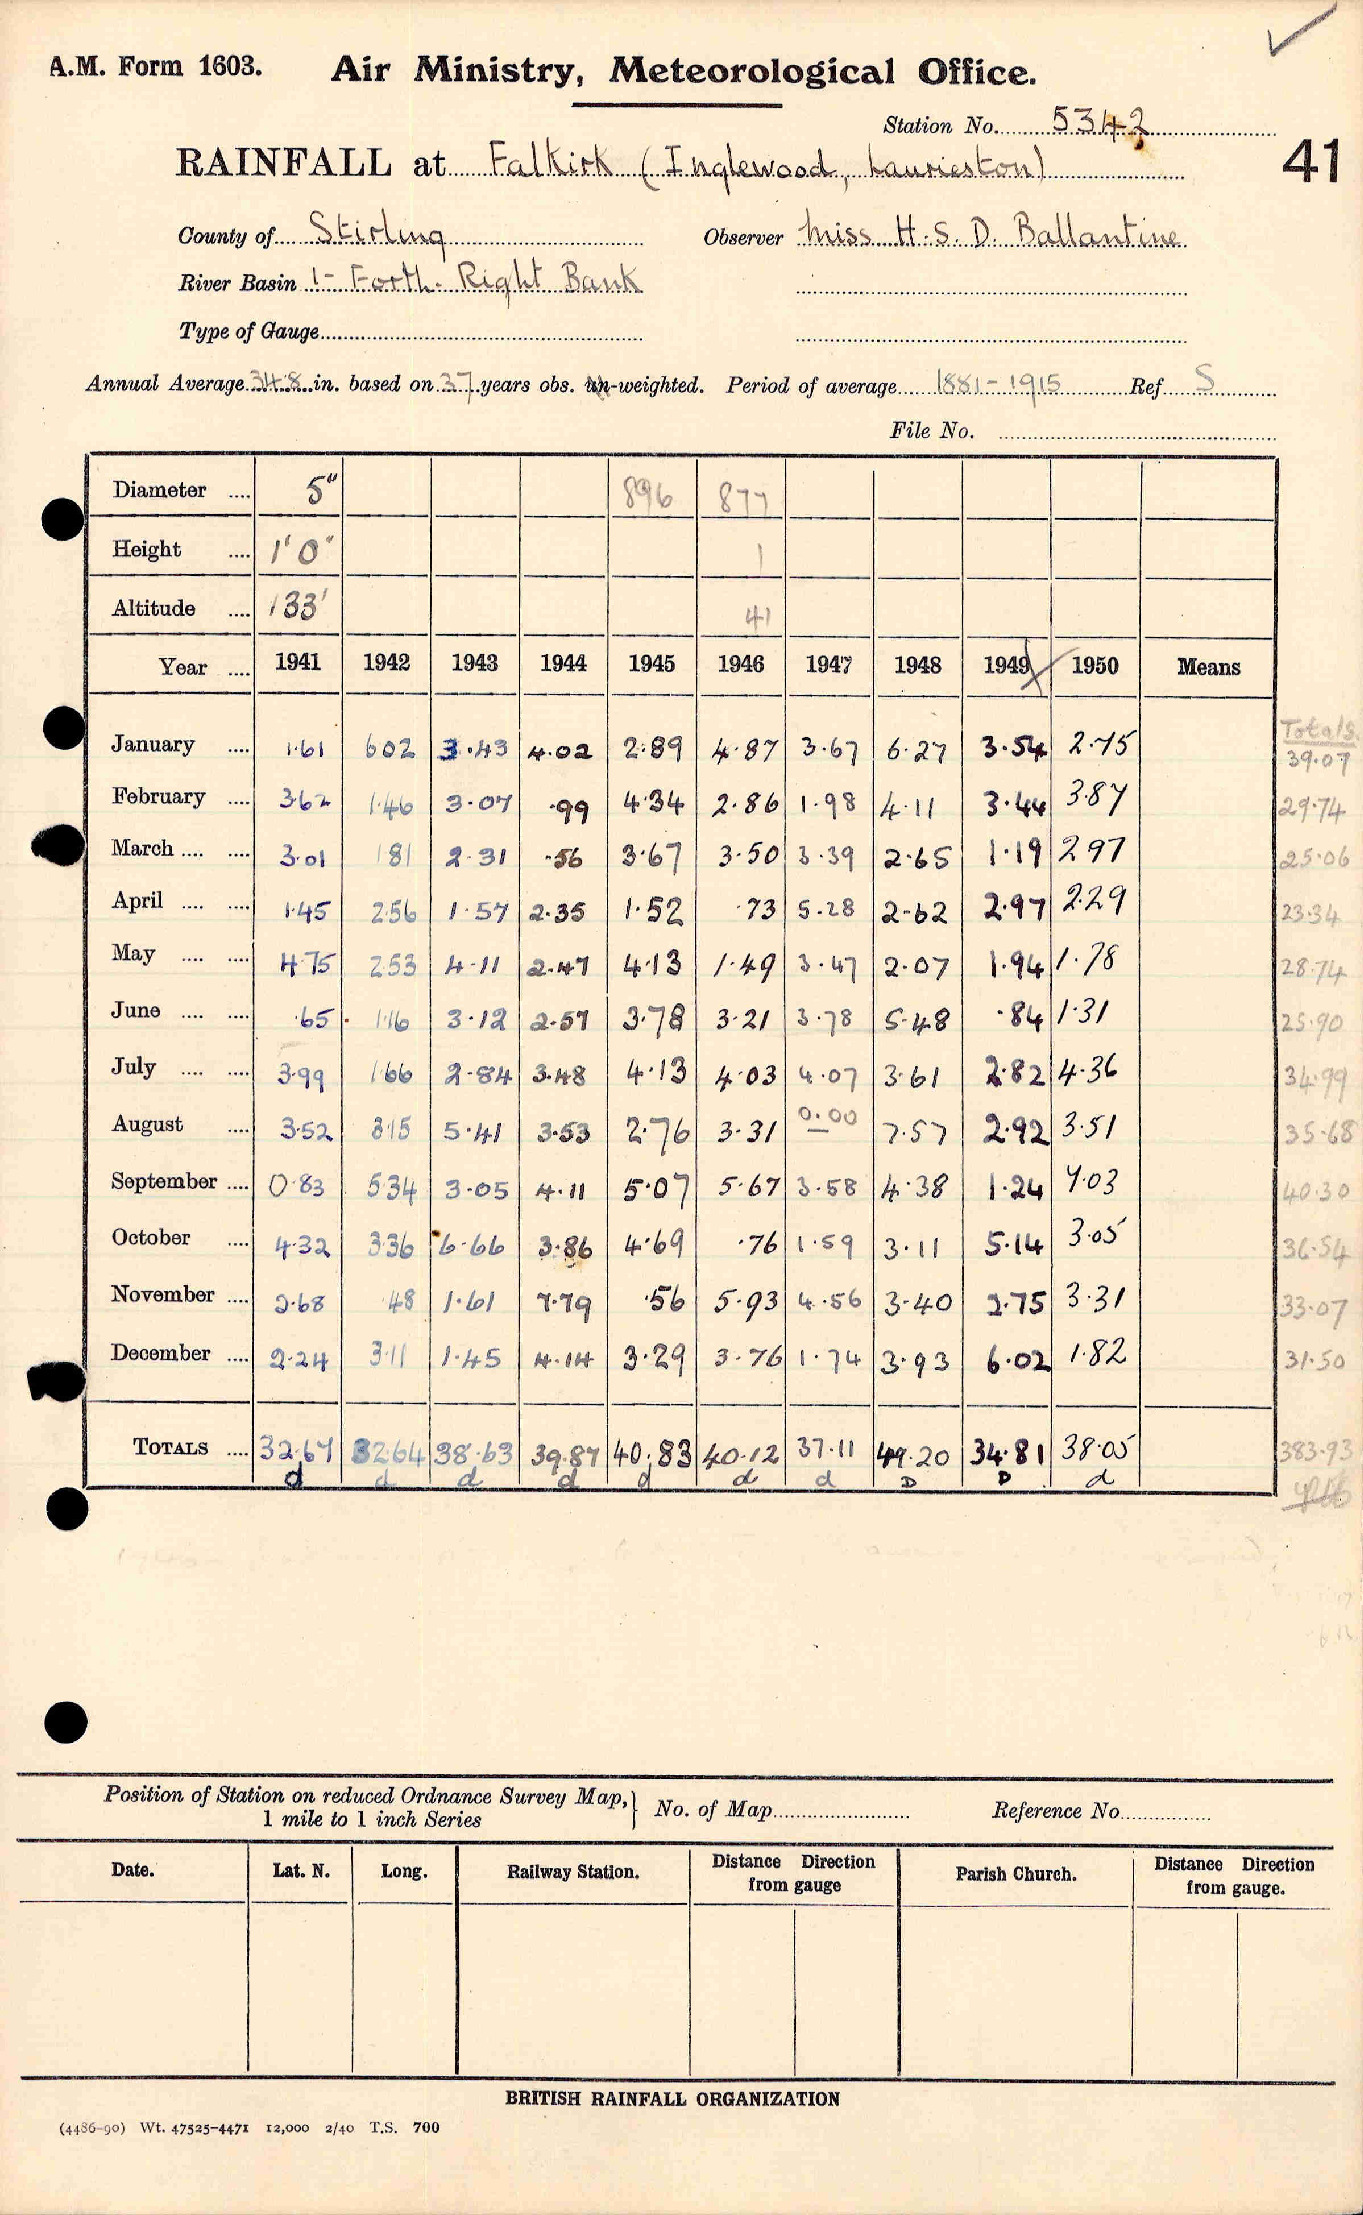 A.M. Form 1603. Air Ministry, Meteorological Office.
Station No. 5342
RAINFALL at Falkirk (Inglewood, Laurieston) 41
County of Stirling Observer Miss H. S. D. Ballantine
River Basin 1- Forth. Right Bank
Type of Gauge
Annual Average 34.8 in. based on 37 years obs. un-weighted. Period of average 1881-1915 Ref S
File No.
Diameter .... 5" 896 877
Height .... 1' 0" 1
Altitude .... 133' 41
Year .... 1941 1942 1943 1944 1945 1946 1947 1948 1949 1950 Means
Totals
January .... 1.61 6 02 3.43 4.02 2.89 4.87 3.67 6.27 3.54 2.75 39.07
February .... 3.62 1.46 3.07 .99 4.34 2.86 1.98 4.11 3.44 3.87 29.74
March .... .... 3.01 1 81 2.31 .56 3.67 3.50 3.39 2.65 1.19 2.97 25.06
April .... .... 1.45 2.56 1.57 2.35 1.52 .73 5.28 2.62 2.97 2.29 23.34
May .... .... 4.75 2.53 4.11 2.47 4.13 1.49 3.47 2.07 1.94 1.78 28.74
June .... .... .65 1.16 3.12 2.57 3.78 3.21 3.78 5.48 .84 1.31 25.90
July .... .... 3.99 1.66 2.84 3.48 4.13 4.03 4.07 3.61 2.82 4.36 34.99
August .... 3.52 3.15 5.41 3.53 2.76 3.31 0.00 7.57 2.92 3.51 35.68
September .... 0.83 5.34 3.05 4.11 5.07 5.67 3.58 4.38 1.24 7.03 40.30
October .... 4.32 3.36 6.66 3.86 4.69 .76 1.59 3.11 5.14 3.05 36.54
November .... 2.68 .48 1.61 7.79 .56 5.93 4.56 3.40 2.75 3.31 33.07
December .... 2.24 3.11 1.45 4.14 3.29 3.76 1.74 3.93 6.02 1.82 31.50
TOTALS .... 32.67 32.64 38.63 39.87 40.83 40.12 37.11 49.20 34.81 38.05 383.93
d d d d d d d D D d
Position of Station on reduced Ordnance Survey Map, } No. of Map Reference No
1 mile to 1 inch Series
Date. Lat. N. Long. Railway Station. Distance Direction from gauge Parish Church. Distance Direction from gauge.
BRITISH RAINFALL ORGANIZATION
(4486-90) Wt. 47525-4471 12,000 2/40 T.S. 700